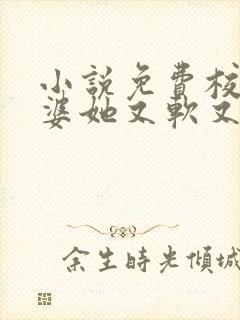 小說免費校
婆她又軟又
余生時光傾城